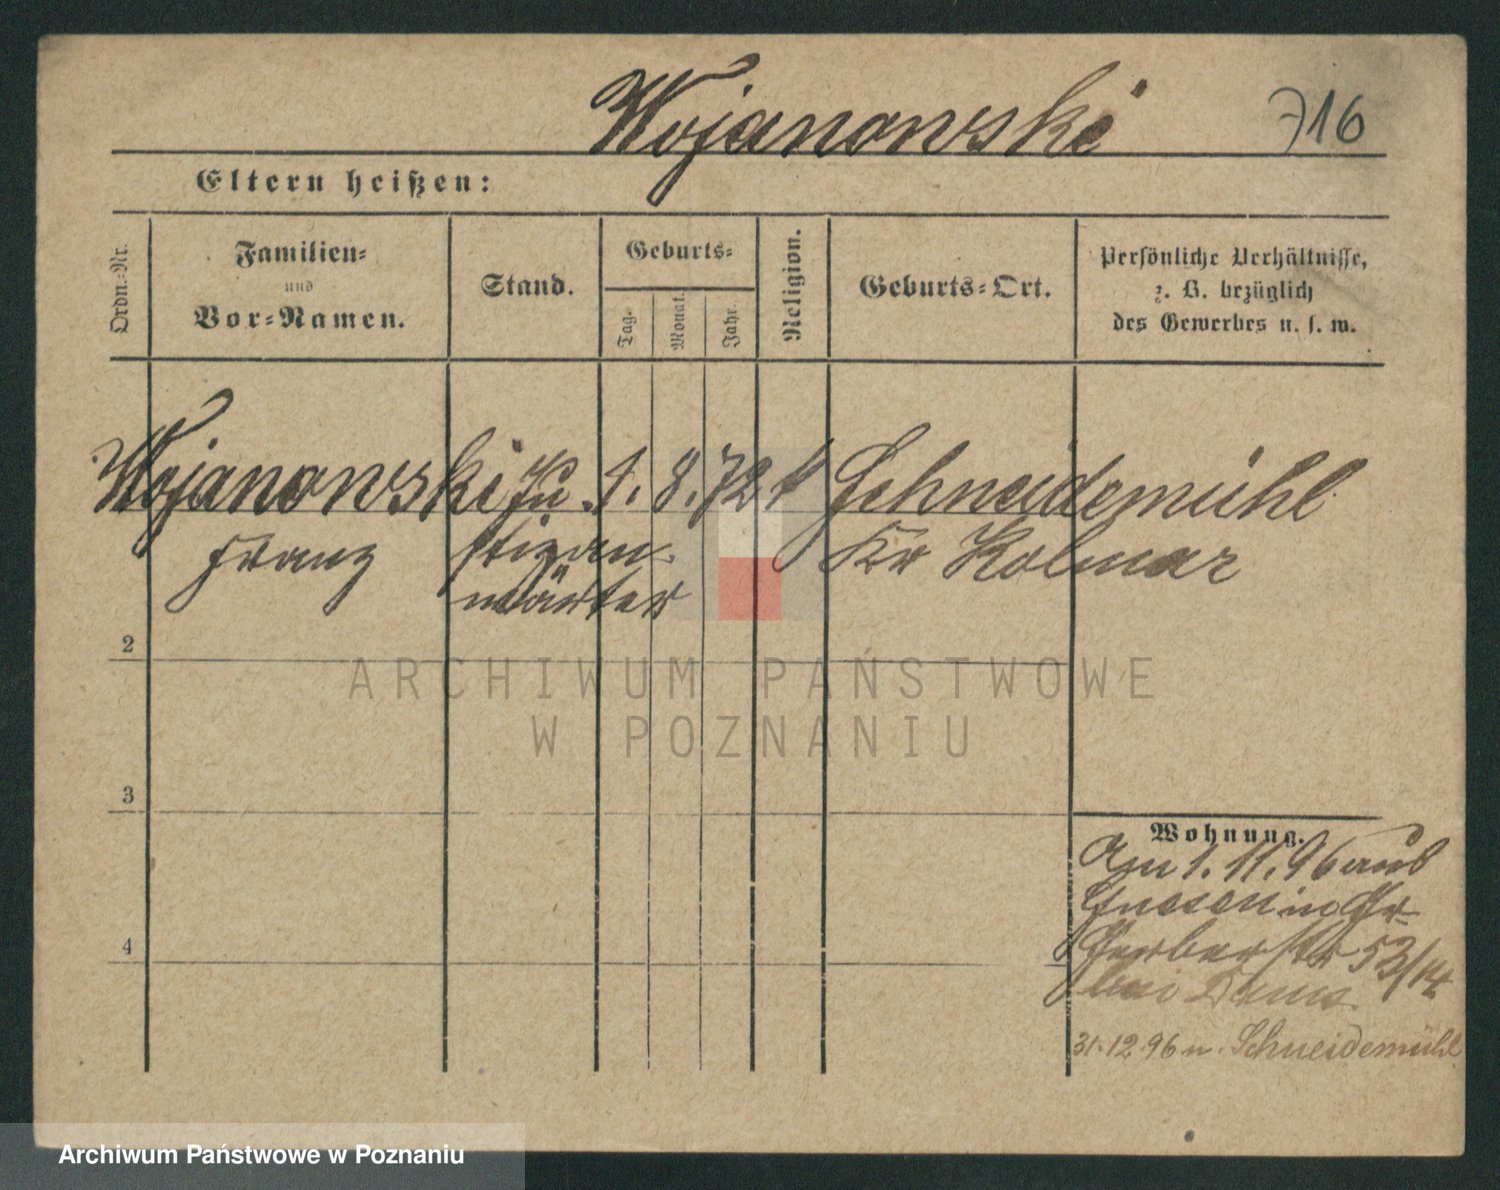 Wojanowski 716
Eltern heißen:
Ordn.=Nr.
Familien=
und
Vor=Namen.
Stand.
Geburts=
Tag.
Monat.
Jahr.
Religion.
Geburts=Ort.
Persönliche Verhältnisse,
z. B. bezüglich
des Gewerbes u. s. w.
Wojanowski Ju 1. 8. 72 k Schneidemühl
Franz stizan
wärter
Kr Kolmar
2
3
4
Wohnung.
Am 1. 11. 96 aus
Gnesen in Gr
Gerberstr 53/14
bei
31.12.96 n. Schneidemühl
ARCHIWUM PAŃSTWOWE
W POZNANIU
Archiwum Państwowe w Poznaniu